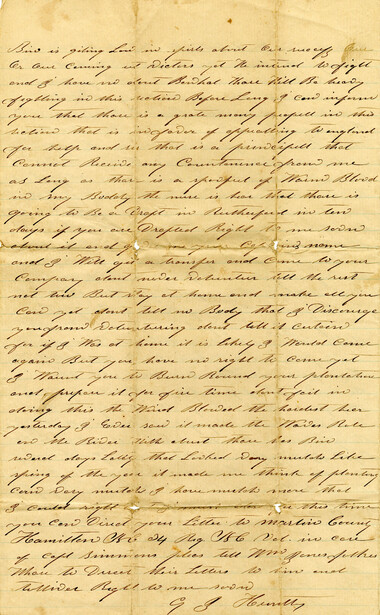 Bin is giting Low in spirits about our success
Or our coming out victors yet he intend to fight
and I have no dout But what thare Will Be heavy
fighting in this section Before Long I can inform
you that thare is a grate many people in this
section that is in favor of appealling to england
for help and is that is a principell that
Cannot Receive any Countenance from me
as Long as thare is a spoonful of Warm Blood
in my Boddy the nuse is hear that thare is
going to Be a Draft in Rutherford in ten
days if you are Drafted Right to me soon
about it and giv me your Captains name
and I Will get a transfer and Come to your
Company dont never volenteer till the rest
not tow But stay at home and make all you
Can yet dont tell no Body that I Discourge
you from volentearing dont tell it Certain
for if I Was at home it is likely I Would Come
again But you have no right to Come yet
I Want you to Burn Round your plantation
and prepare it for fire time dont fail in
doing this the Wind Blowed the hardest her
yesterday I Ever saw it made the Waves Role
on the River With about thare has Bin
several days Lattly that Looked very mutch Like
spring of the year it made me think of planting
Corn very mutch I have mutch more that
I Could right this time
you Can Direct your Letter to Martin County
Hamilton N C 34 Reg N C Vol. in care
of Capt Simmions pleas tell Wm Jones folkes
Whare to Direct their Letters to him and
Right to me soon
G J Huntly